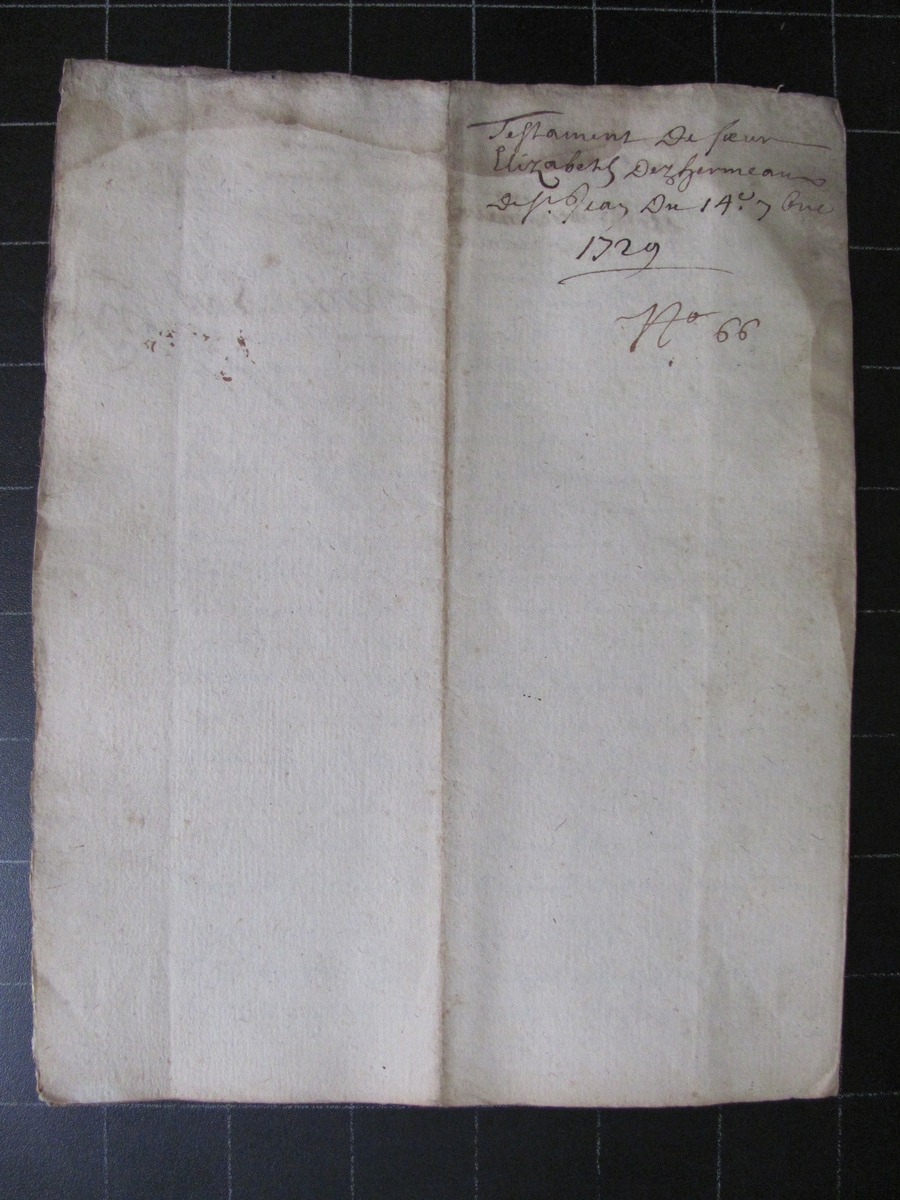 Testament De sœur
Elizabeth Dezhermeaux
de st. Jean Du 14e. 7 bre
1729
No 66